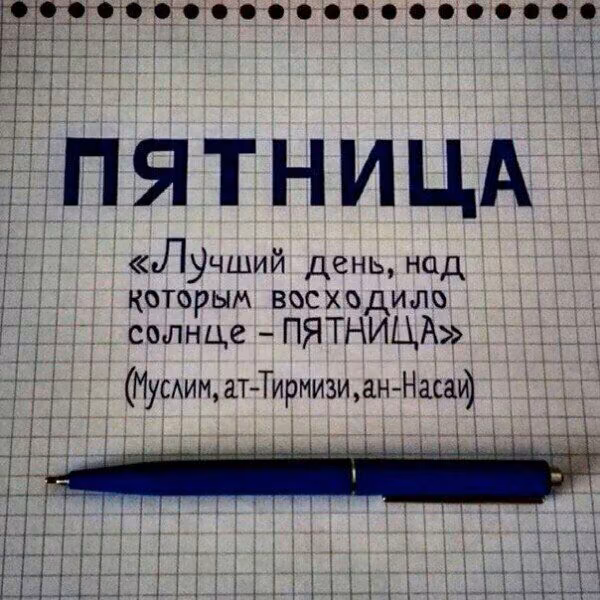 ПЯТНИЦА
«Лучший день, над
которым восходило
солнце – ПЯТНИЦА»
(Муслим, ат-Тирмизи, ан-Насаи)